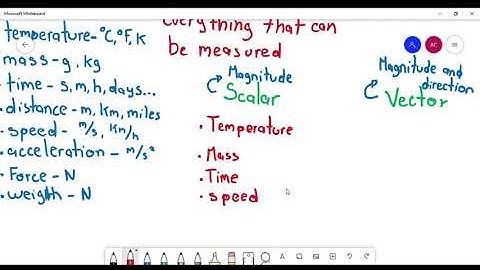 Microsoft Whiteboard
temperature- °C, °F, K
mass- g, kg
time - s, m, h, days...
distance- m, Km, miles
speed - m/s, Km/h
acceleration - m/s²
Force - N
weight - N
Everything that can
be measured
Magnitude
Scalar
Temperature
Mass
Time
speed
Magnitude and
direction
Vector
AC